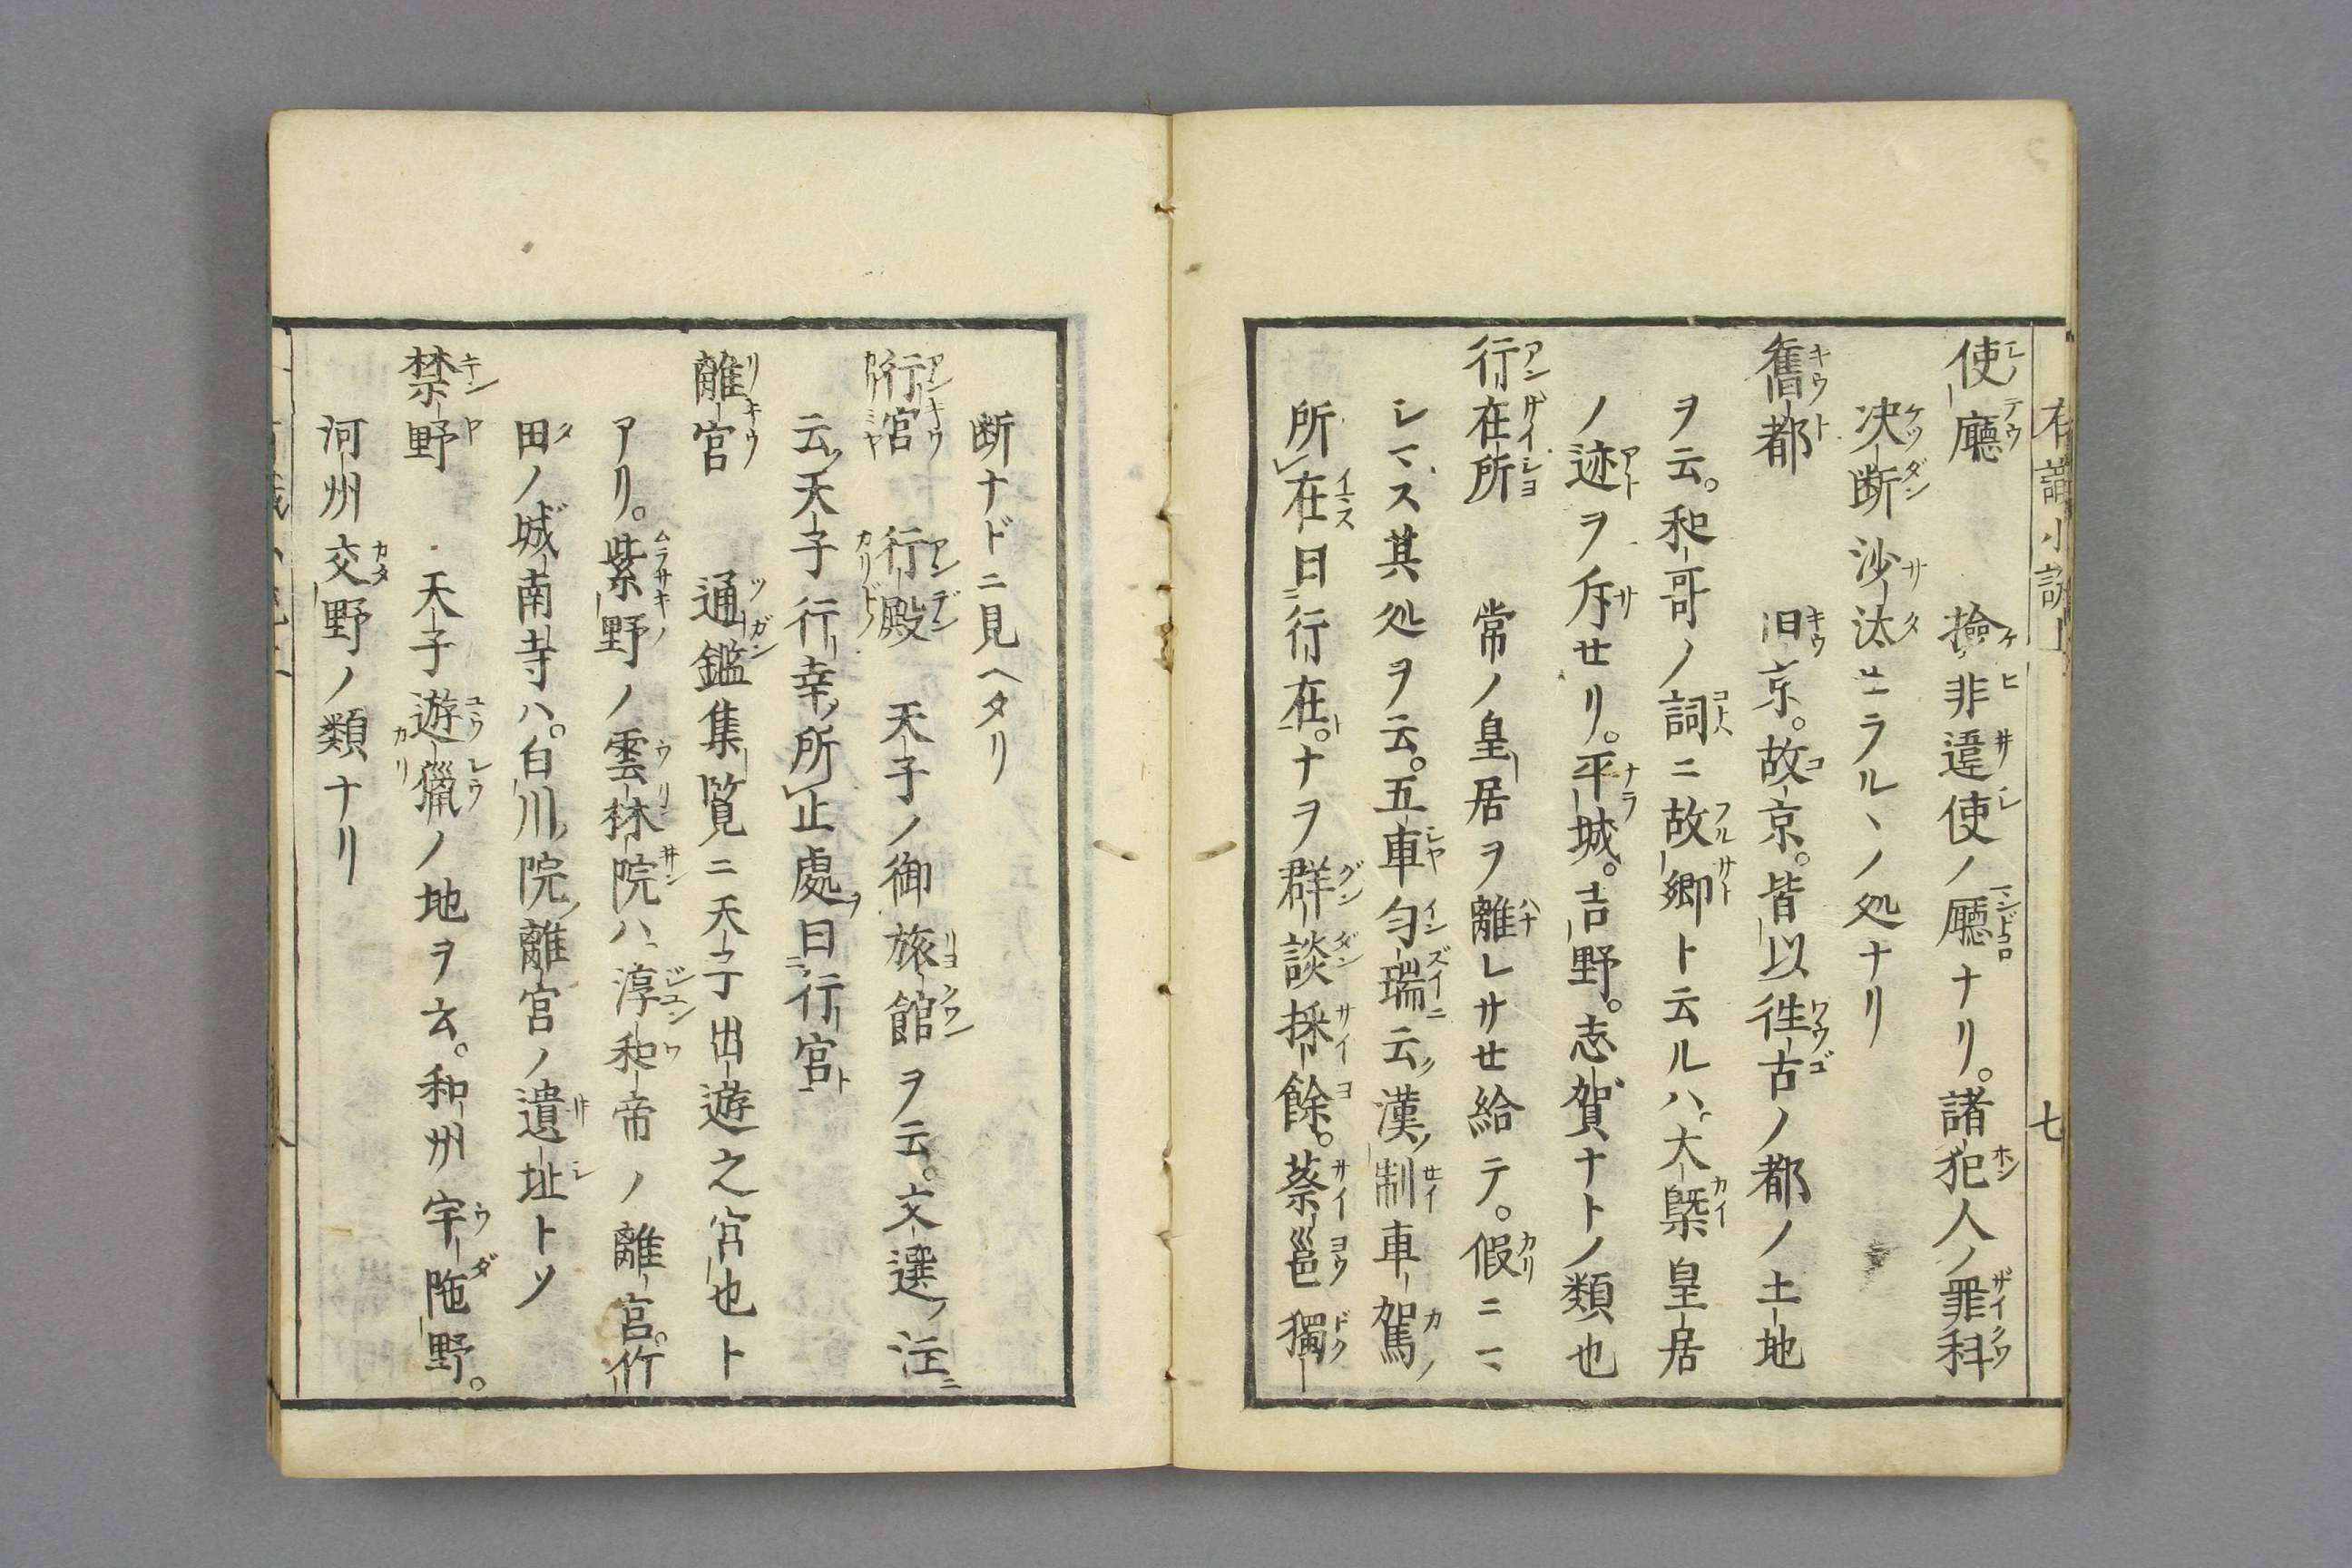 使廳　撿非違使ノ廳ナリ。諸犯人ノ罪科
决断沙汰セラルヽノ処ナリ
舊都　旧京。故京。皆以徃古ノ都ノ土地
ヲ云。和哥ノ詞ニ故郷ト云ルハ大槩皇居
ノ迹ヲ斥セリ。平城。吉野。志賀ナトノ類也
行在所　常ノ皇居ヲ離レサセ給テ。假ニマ
シマス其処ヲ云。五車匀瑞云漢ノ制車駕ノ
所在曰行在。ナヲ群談採餘。蔡邕獨
断ナドニ見ヘタリ
行宮　行殿　天子ノ御旅館ヲ云。文選ノ注ニ
云天子行幸ノ所止處ヲ曰行宮ト
離宮　通鑑集覧ニ天子出遊之宮也ト
アリ。紫野ノ雲林院ハ淳和帝ノ離宮。竹
田ノ城南寺ハ。白川院ノ離宮ノ遺址トソ
禁野　天子遊獵ノ地ヲ云。和州宇陁野。
河州交野ノ類ナリ